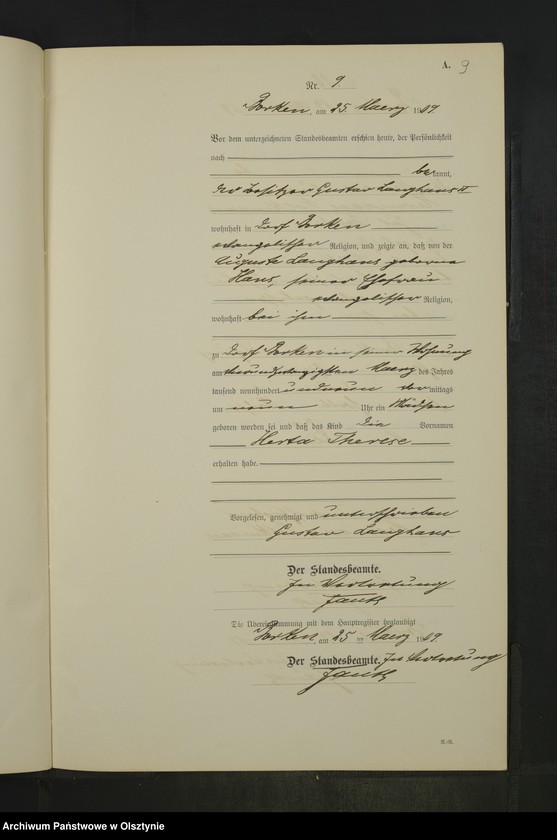 A. 9
Nr. 9.
Borken, am 25. Maerz 1909.
Vor dem unterzeichneten Standesbeamten erschien heute, der Persönlichkeit
nach
bekannt,
der Besitzer Gustav Langhans II
wohnhaft in Dorf Borken
evangelischer Religion, und zeigte an, daß von der
Auguste Langhans geborene
Hans, seiner Ehefrau
evangelischer Religion,
wohnhaft bei ihm
zu Dorf Borken in seiner Wohnung
am                   Maerz des Jahres
tausend neunhundert und neun vormittags
um neun Uhr ein Mädchen
geboren worden sei und daß das Kind die Vornamen
Herta Therese
erhalten habe.
Vorgelesen, genehmigt und unterschrieben
Gustav Langhans
Der Standesbeamte.
In Vertretung
Die Übereinstimmung mit dem Hauptregister beglaubigt
Borken, am 25 ten Maerz 1909.
Der Standesbeamte. In Vertretung
Archiwum Państwowe w Olsztynie